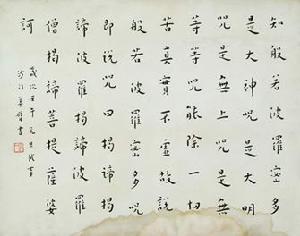 知般若波羅蜜多
是大神咒是大明
咒是無上咒是無
等等咒能除一切
苦真實不虛故說
般若波羅蜜多咒
即說咒曰揭諦揭
諦波羅揭諦波羅
僧揭諦菩提薩婆
訶
歲次壬午
書